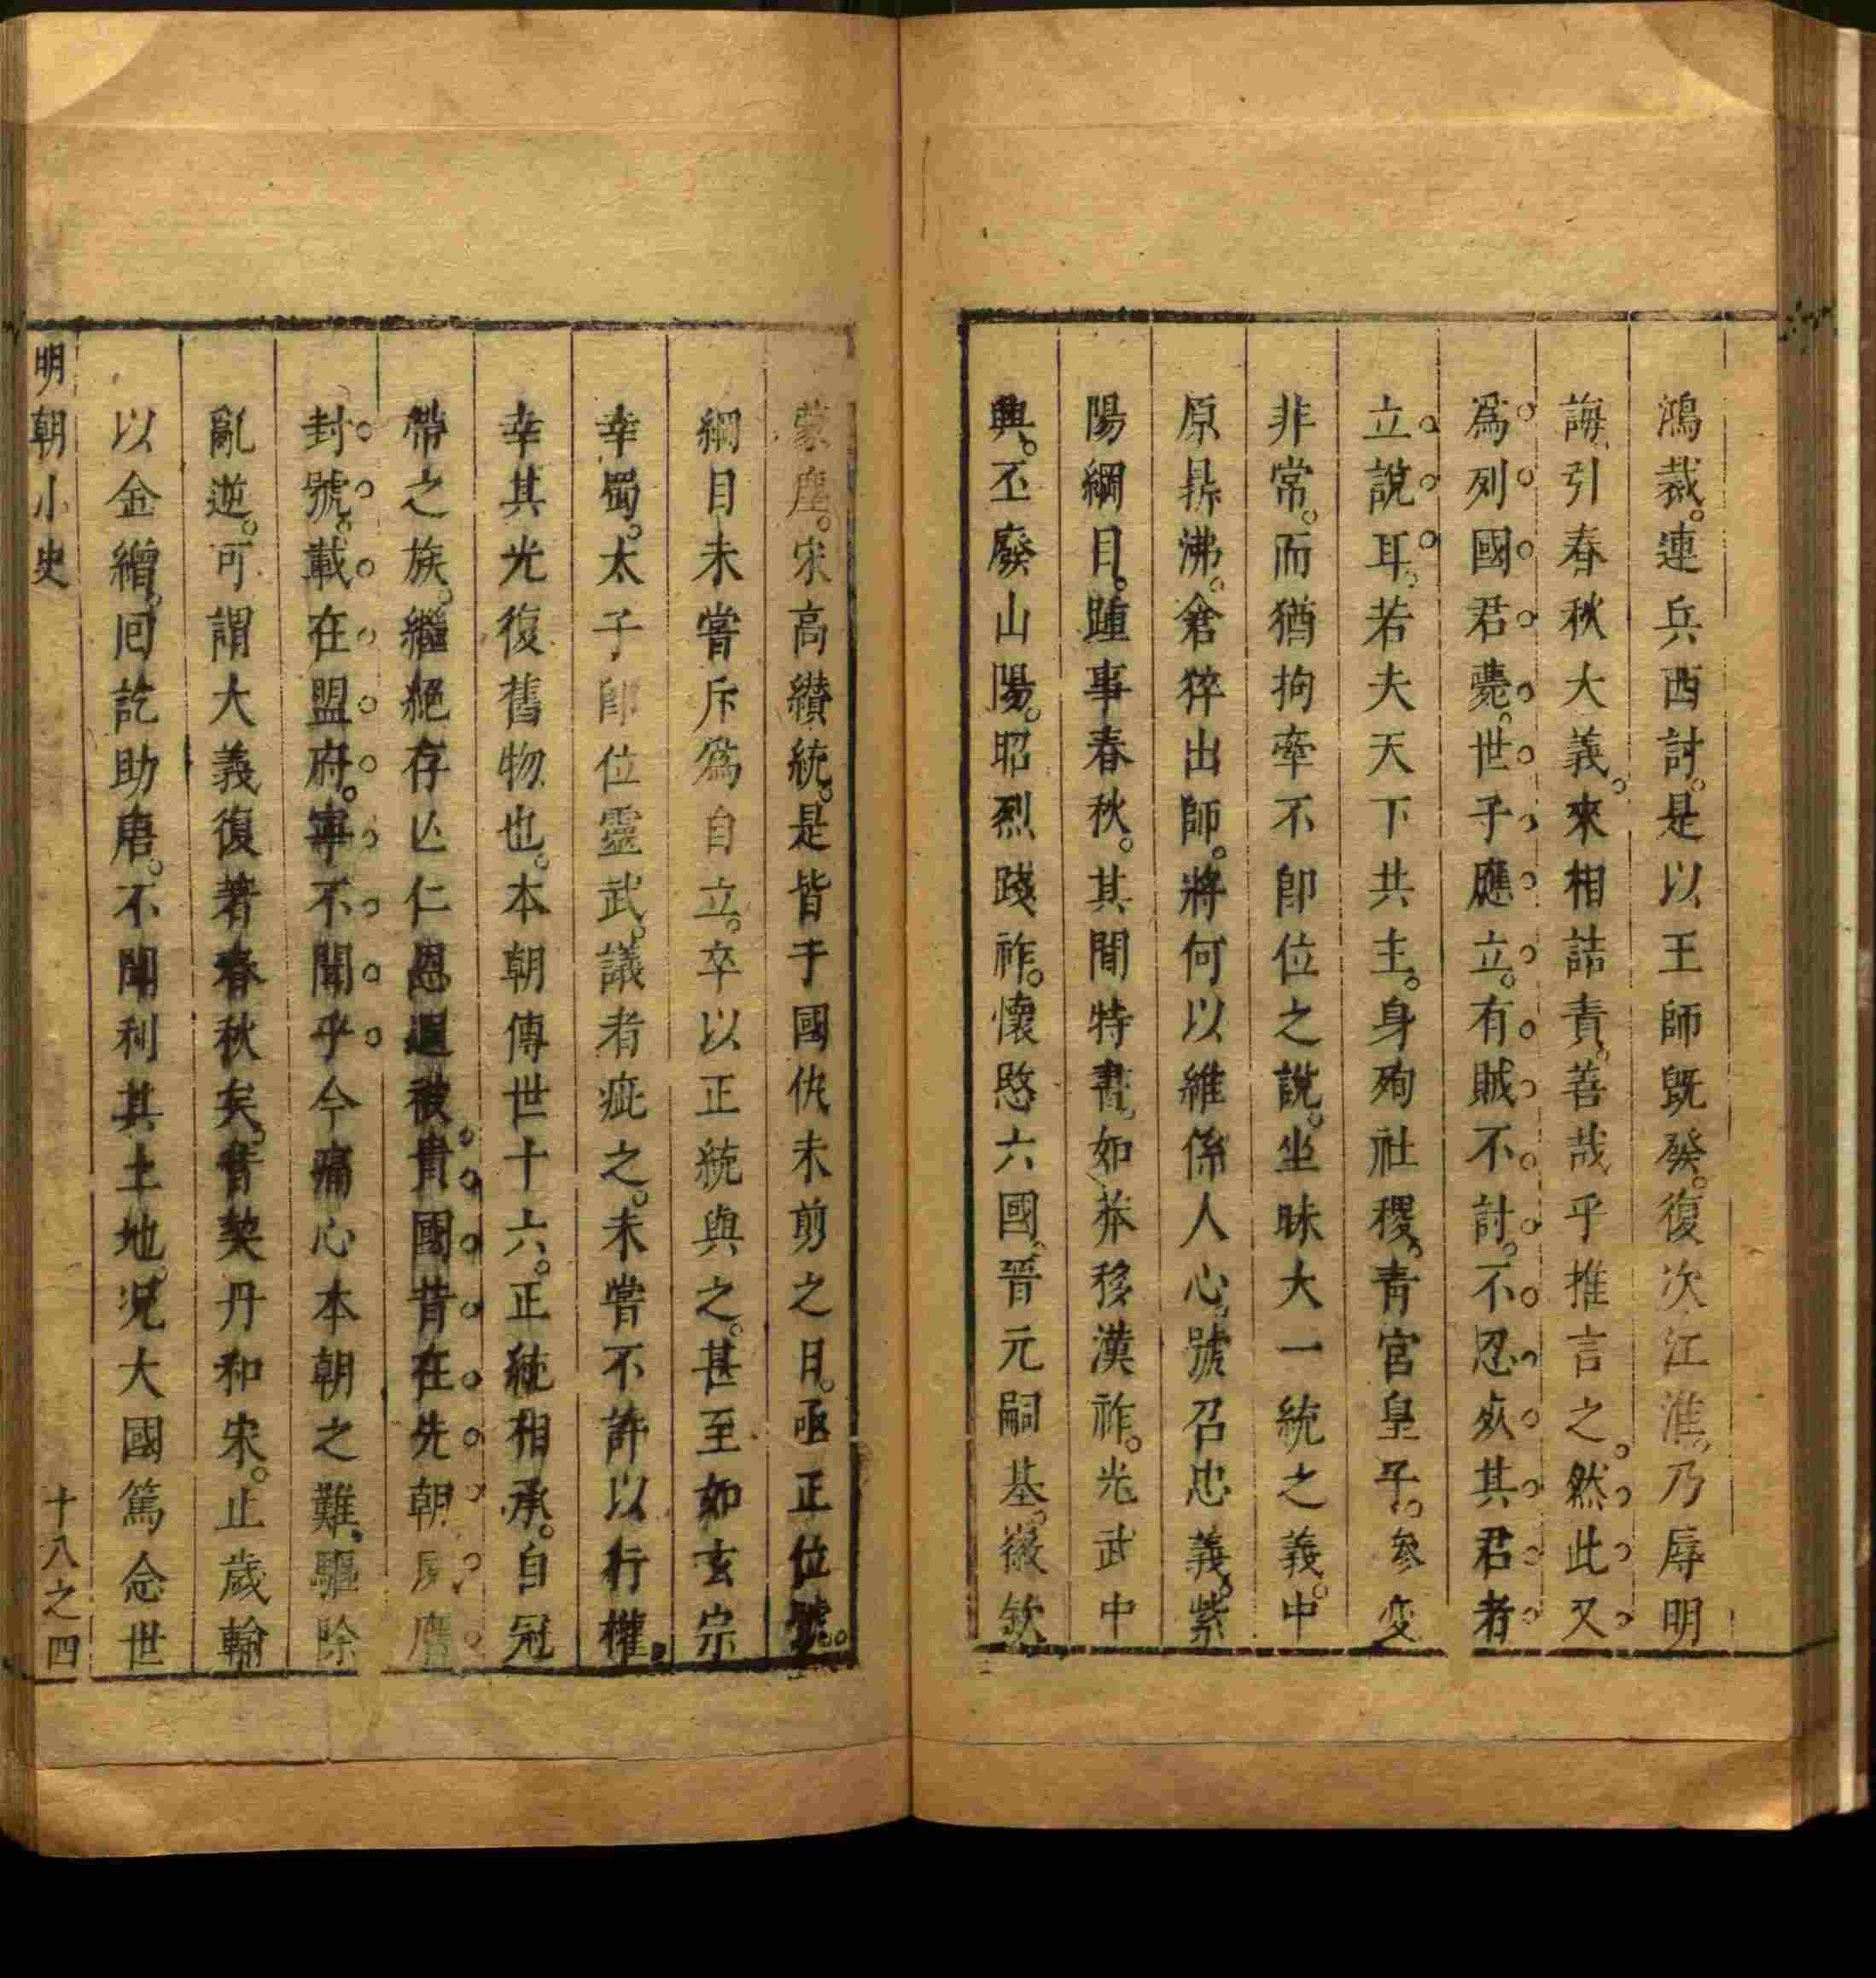 鴻裁。連兵西討。是以王師旣發。復次江淮。乃辱明
誨、引春秋大義。來相詰責。善哉乎推言之。然此又
爲列國君薨。世子應立。有賊不討。不忍死其君者
立說耳。若夫天下共主。身殉社稷。青宮皇子。參变
非常。而猶拘牽不卽位之說。坐昧大一統之義。中
原鼎沸。倉猝出師。將何以維係人心。號召忠義。紫
陽綱目。踵事春秋。其間特書。如莽移漢祚。光武中
興。丕廢山陽。昭烈踐祚。懷愍六國。晉元嗣基。徽欽
蒙塵。宋高纉統。是皆于國仇未剪之日。亟正位號。
綱目未嘗斥爲自立。卒以正統與之。甚至如玄宗
幸蜀。太子卽位靈武。議者疵之。未嘗不許以行權。
幸其光復舊物也。本朝傳世十六。正統相承。自冠
帶之族。繼絕存亾仁恩遐被。貴國昔在先朝夙膺
封號。載在盟府。寧不聞乎今痛心本朝之難、驅除
亂逆。可謂大義復著春秋矣。昔契丹和宋。止歲輸
以金繒。囘訖助唐。不聞利其土地。况大國篤念世
明朝小史
十八之四